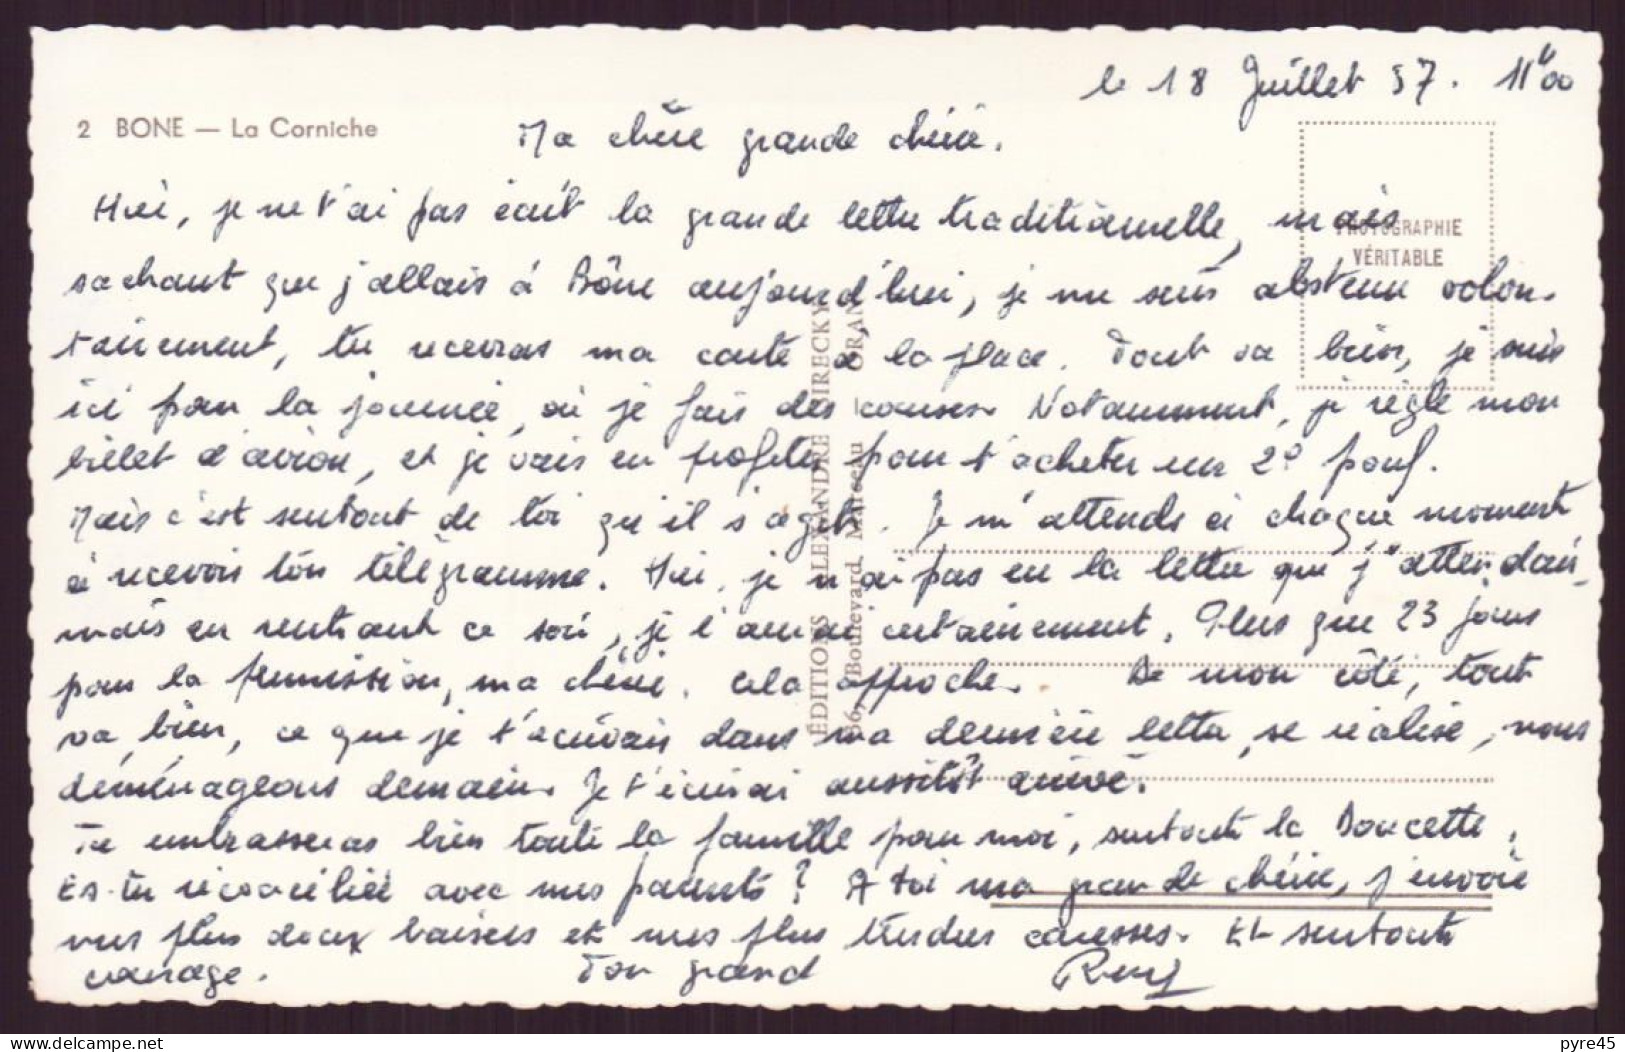 le 18 Juillet 57. 11h00
2 BONE — La Corniche
Ma chère grande chérie.
Hier, je ne t'ai pas écrit la grande lettre traditionnelle, mais
PHOTOGRAPHIE
VÉRITABLE
sachant que j'allais à Bône aujourd'hui, je me suis abstenu volon-
tairement, tu recevras ma carte à la place. Tout va bien, je suis
ici pour la journée, où je fais des courses. Notamment, je règle mon
billet d'avion, et je vais en profiter pour t'acheter un 2° pouf.
Mais c'est surtout de toi qu'il s'agit. Je m'attends à chaque moment
à recevoir ton télégramme. Hier, je n'ai pas eu la lettre que j'attendais,
mais en rentrant ce soir, je l'aurai certainement. Plus que 23 jours
pour la permission, ma chérie. Cela approche. De mon côté, tout
va bien, ce que je t'écrivais dans ma dernière lettre, se réalise, nous
déménageons demain. Je t'écrirai aussitôt arrivé.
Tu embrasseras bien toute la famille pour moi, surtout la Doucette.
Es-tu réconciliée avec mes parents ? A toi ma grande chérie, j'envoie
mes plus doux baisers et mes plus tendres caresses. Et surtout
courage. Ton grand
ÉDITIONS ALEXANDRE JIRECKY
Boulevard Marceau — ORAN
BONE — La Corniche
pyre45